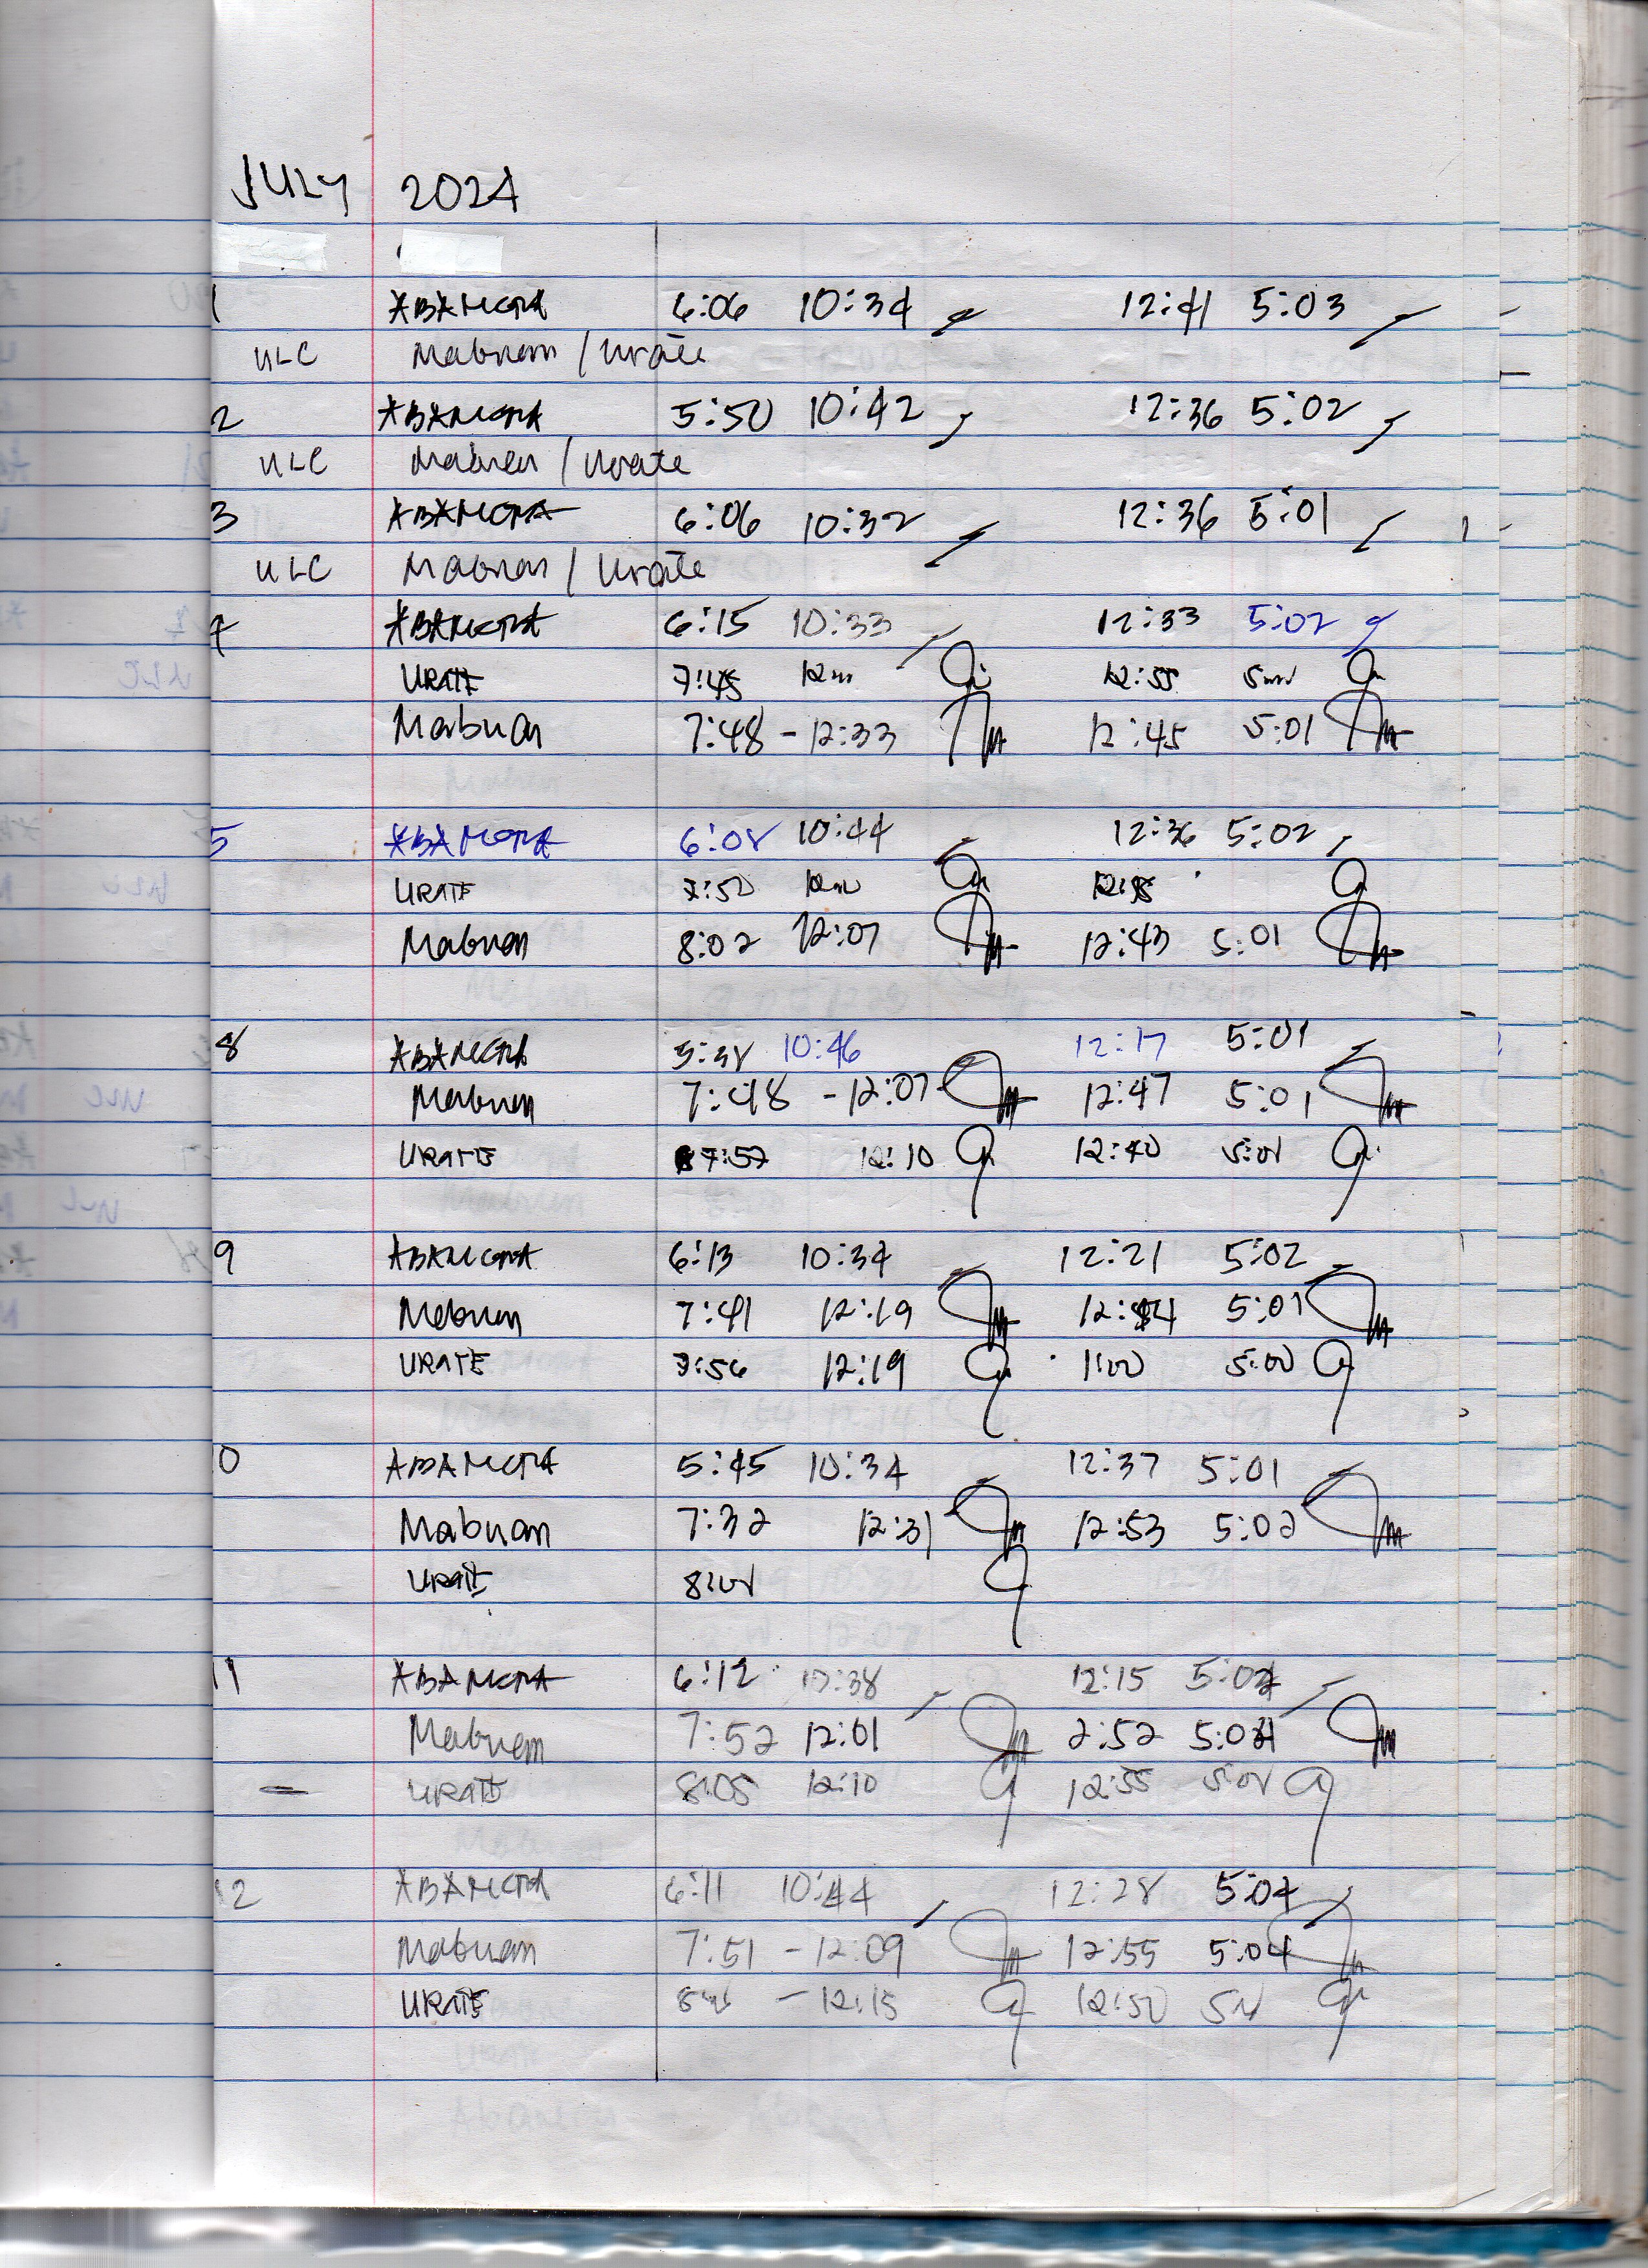 JULY 2024
1 ABAMONGA 6:06 10:34 12:41 5:03
ULC Mabuan / Urate
2 ABAMONGA 5:50 10:42 12:36 5:02
ULC Mabuan / Urate
3 ABAMONGA 6:06 10:32 12:36 5:01
ULC Mabuan / Urate
4 6:15 10:33 12:33 5:02
URATE 7:45 12:55
Mabuan 7:48 - 12:33 12:45 5:01
5 6:08 10:44 12:36 5:02
URATE 7:50
Mabuan 8:02 12:07 12:43 5:01
8 5:38 10:46 12:17 5:01
Mabuan 7:48 - 12:07 12:47 5:01
URATE 7:57 12:10 12:40 5:01
9 6:13 10:34 12:21 5:02
Mabuan 7:41 12:19 12:44 5:01
URATE 7:56 12:19 1:00 5:00
0 5:45 10:34 12:37 5:01
Mabuan 7:32 12:31 12:53 5:02
URATE
11 6:12 10:38 12:15
Mabuan 7:52 12:01 2:52
URATE 8:05 12:10 12:55
12 6:11 10:44 12:28 5:04
Mabuan 7:51 - 12:09 12:55 5:04
URATE - 12:15 12:50